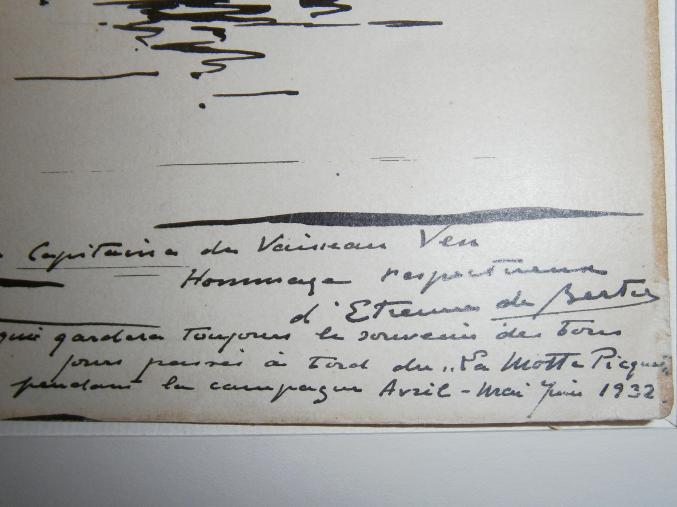 Capitaine de Vaisseau Ven
Hommage respectueux
d'Etienne de Bertie
qui gardera toujours le souvenir des bons
jours passés à bord du "La Motte Picquet"
pendant la campagne Avril - Mai Juin 1932.